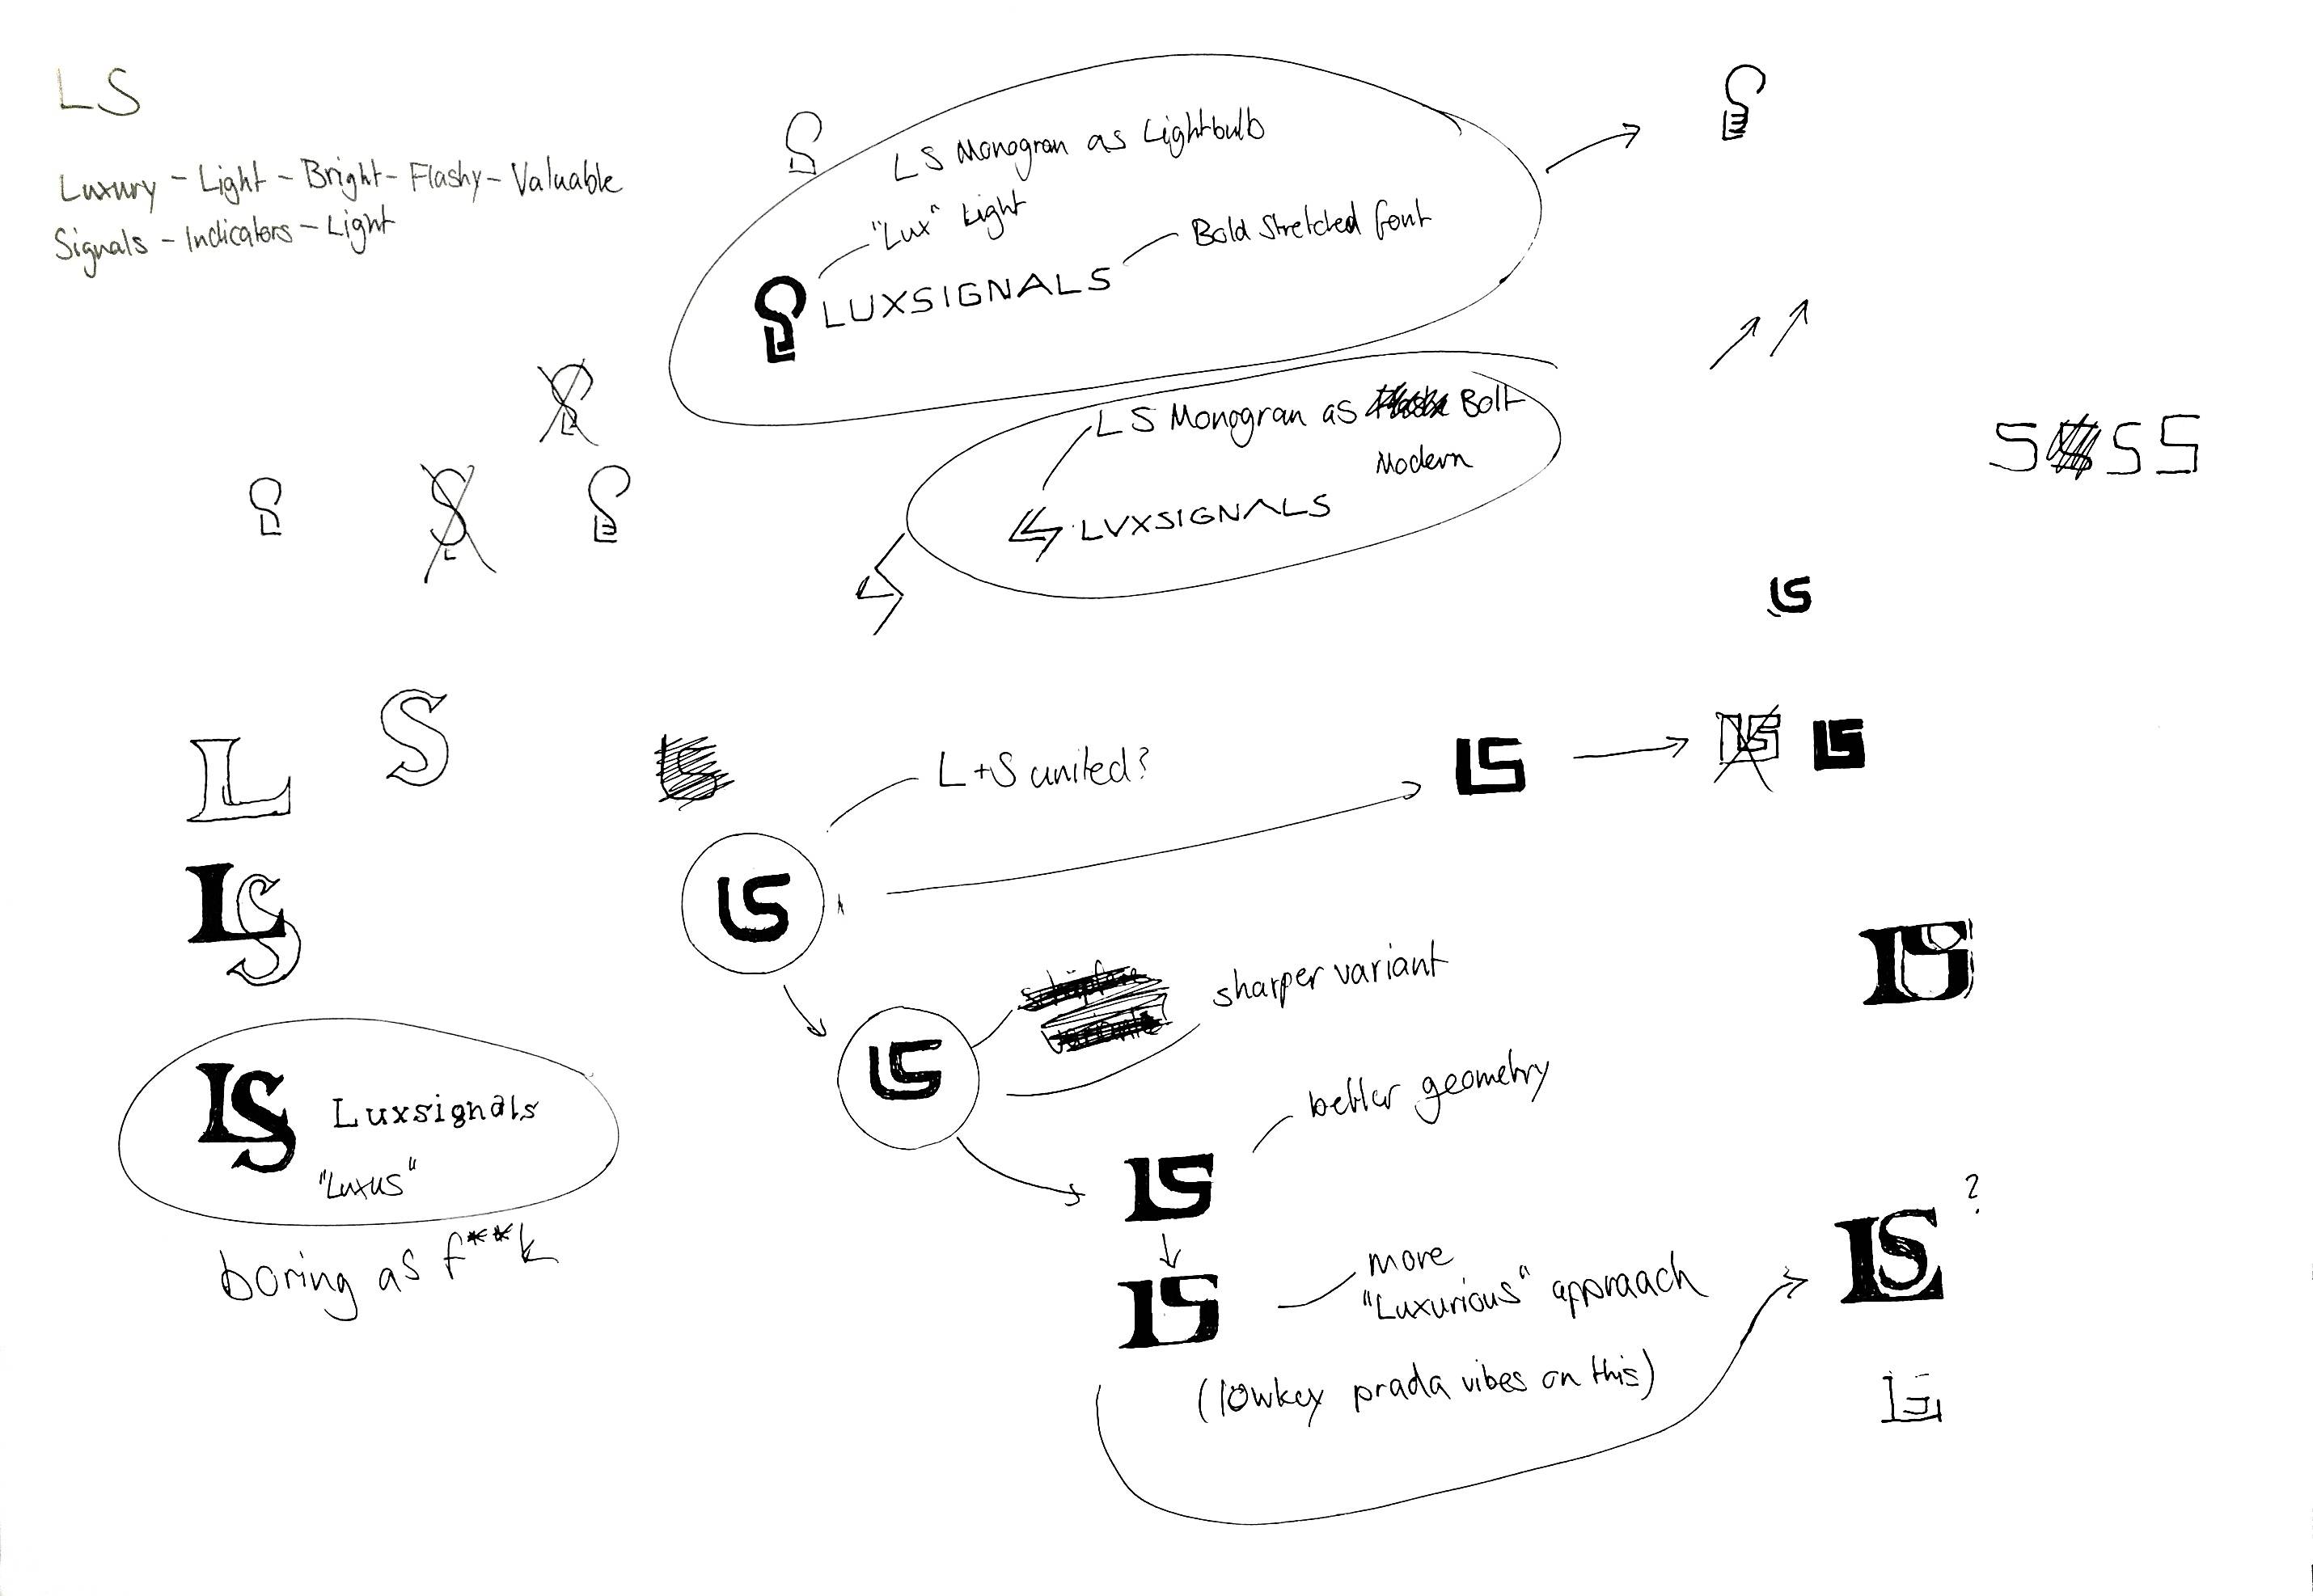 LS
Luxury - Light - Bright - Flashy - Valuable
Signals - Indicators - Light
LS Monogran as Lightbulb
"Lux" Light
Bold stretched font
LUXSIGNALS
LS Monogran as Bolt
Modern
LVXSIGNALS
S S S
LS
L S
L+S united?
LS
LS
LS
LS
LS
sharper variant
LS
LS
Luxsignals
"Luxus"
boring as f***k
better geometry
LS
more
"Luxurious" appraach
LS
(lowkey prada vibes on this)
LS
?
LS